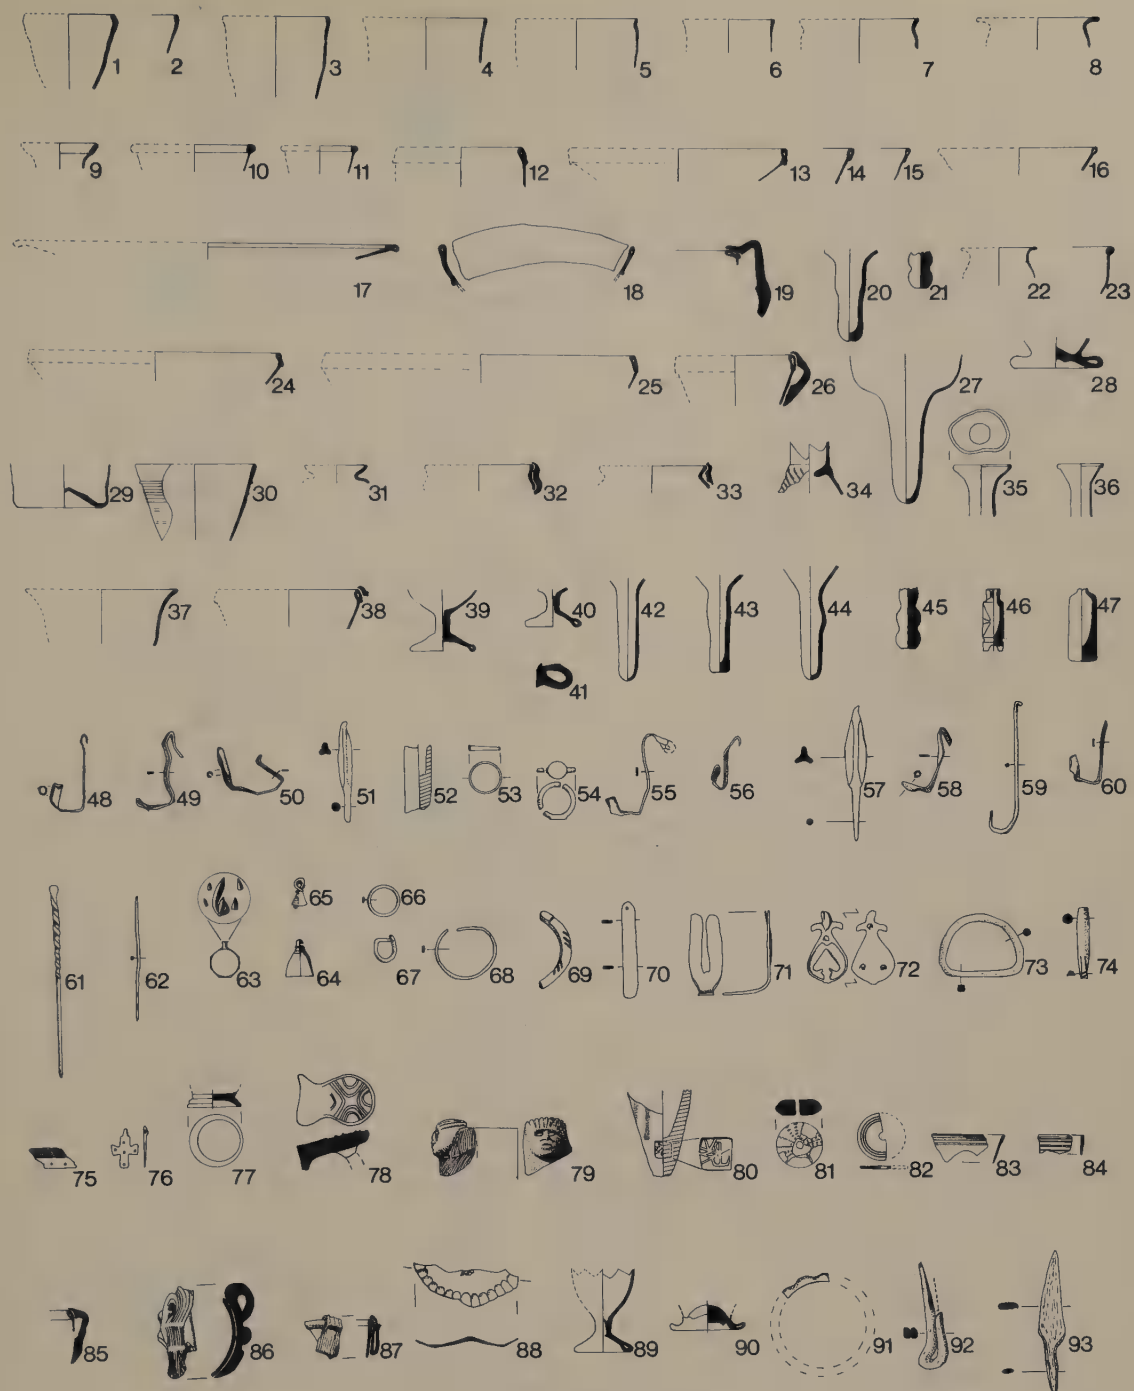 1 2 3 4 5 6 7 8
9 10 11 12 13 14 15 16
17 18 19 20 21 22 23
24 25 26 27 28
29 30 31 32 33 34 35 36
37 38 39 40 41 42 43 44 45 46 47
48 49 50 51 52 53 54 55 56 57 58 59 60
61 62 63 64 65 66 67 68 69 70 71 72 73 74
75 76 77 78 79 80 81 82 83 84
85 86 87 88 89 90 91 92 93